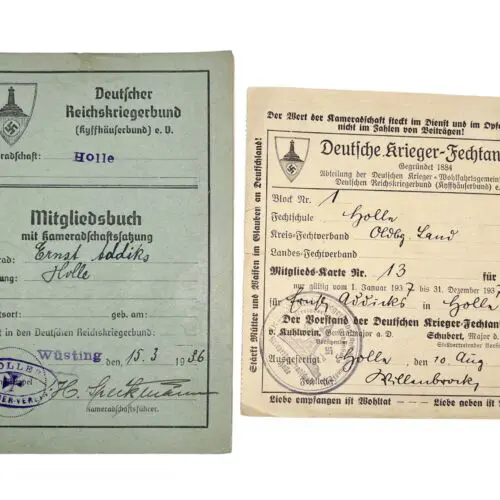 Deutscher
Reichskriegerbund
(Kyffhäuserbund) e. V.
radschaft: Holle
Mitgliedsbuch
mit Kameradschaftssatzung
rad: Ernst Addiks
ung: Holle
tsort: geb. am:
t in den Deutschen Reichskriegerbund:
Wüsting den 15.3 1936
HOLLE
Kameradschaftsführer.
Der Wert der Kameradschaft steckt im Dienst und im Opfe
nicht im Zahlen von Beiträgen!
Stärkt Mütter und Waisen im Glauben an Deutschland!
Deutsche Krieger-Fechtan
Gegründet 1884
Abteilung der Deutschen Krieger-Wohlfahrtsgemein
Deutschen Reichskriegerbund (Kyffhäuserbund) e.
Block Nr. 1
Fechtschule Holle
Kreis-Fechtverband Oldbg. Land
Landes-Fechtverband
Mitglieds-Karte Nr. 13 für
nur gültig vom 1. Januar 1937 bis 31. Dezember 193
für Ernst Addicks in Holle
Der Vorstand der Deutschen Krieger-Fechtan
v. Kuhlwein, Generalmajor a. D. Schubert, Major a.
Vorsitzender Stellvertretender Vorsi
Ausgefertigt Holle den 10 Aug
Fechtleiter Willenbrock
Liebe empfangen ist Wohltat — Liebe geben ist